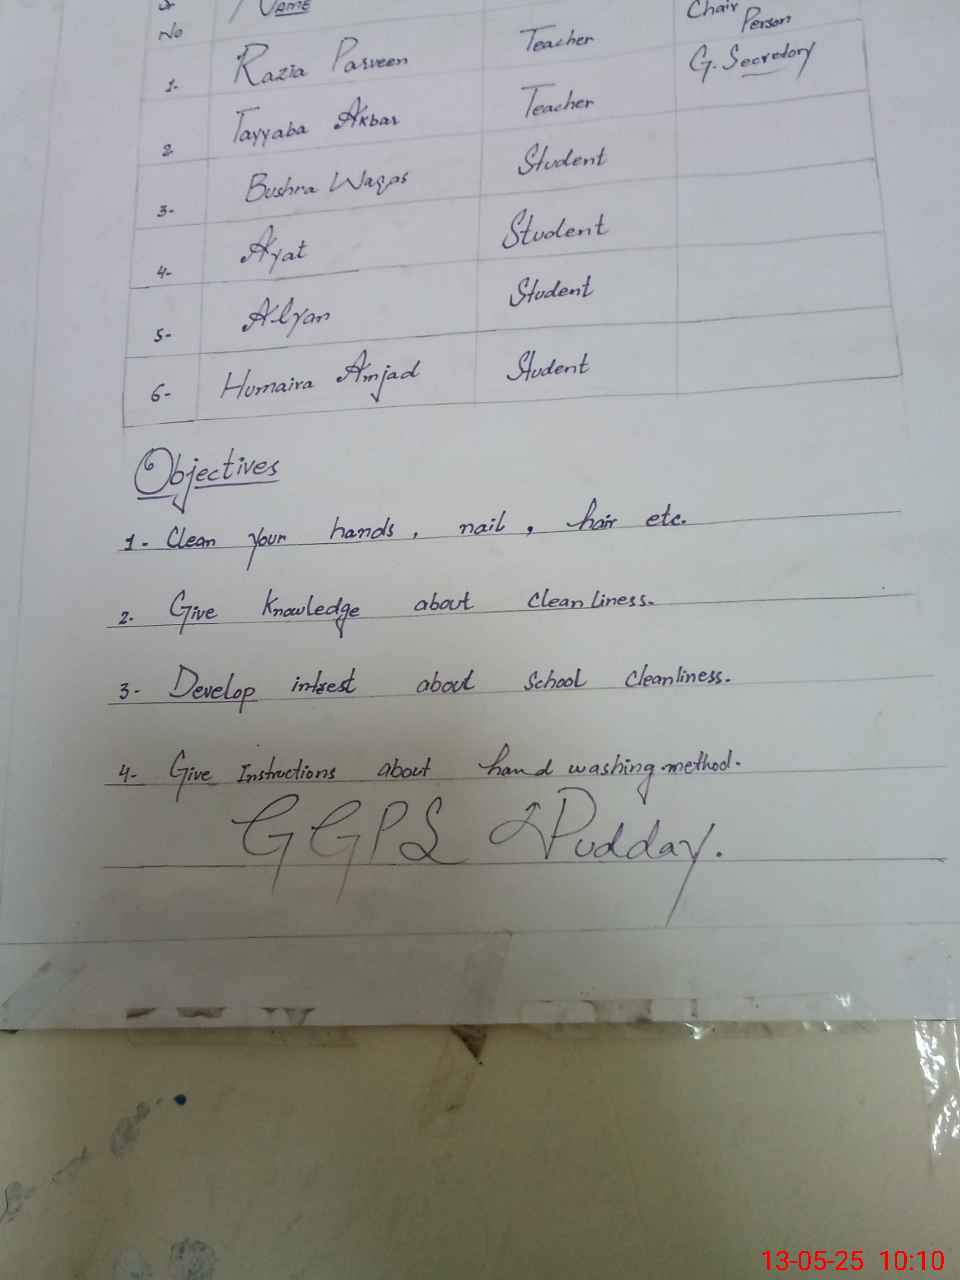 Sr No NAME
1- Razia Parveen Teacher Chair Person
2- Tayyaba Akbar Teacher G. Secredory
3- Bushra Waqas Student
4- Ayat Student
5- Alyan Student
6- Humaira Amjad Student
Objectives
1- Clean your hands, nail, hair etc.
2. Give Knowledge about cleanliness.
3- Develop intrest about School Cleanliness.
4- Give Instructions about hand washing method.
GGPS Pudday.
13-05-25 10:10